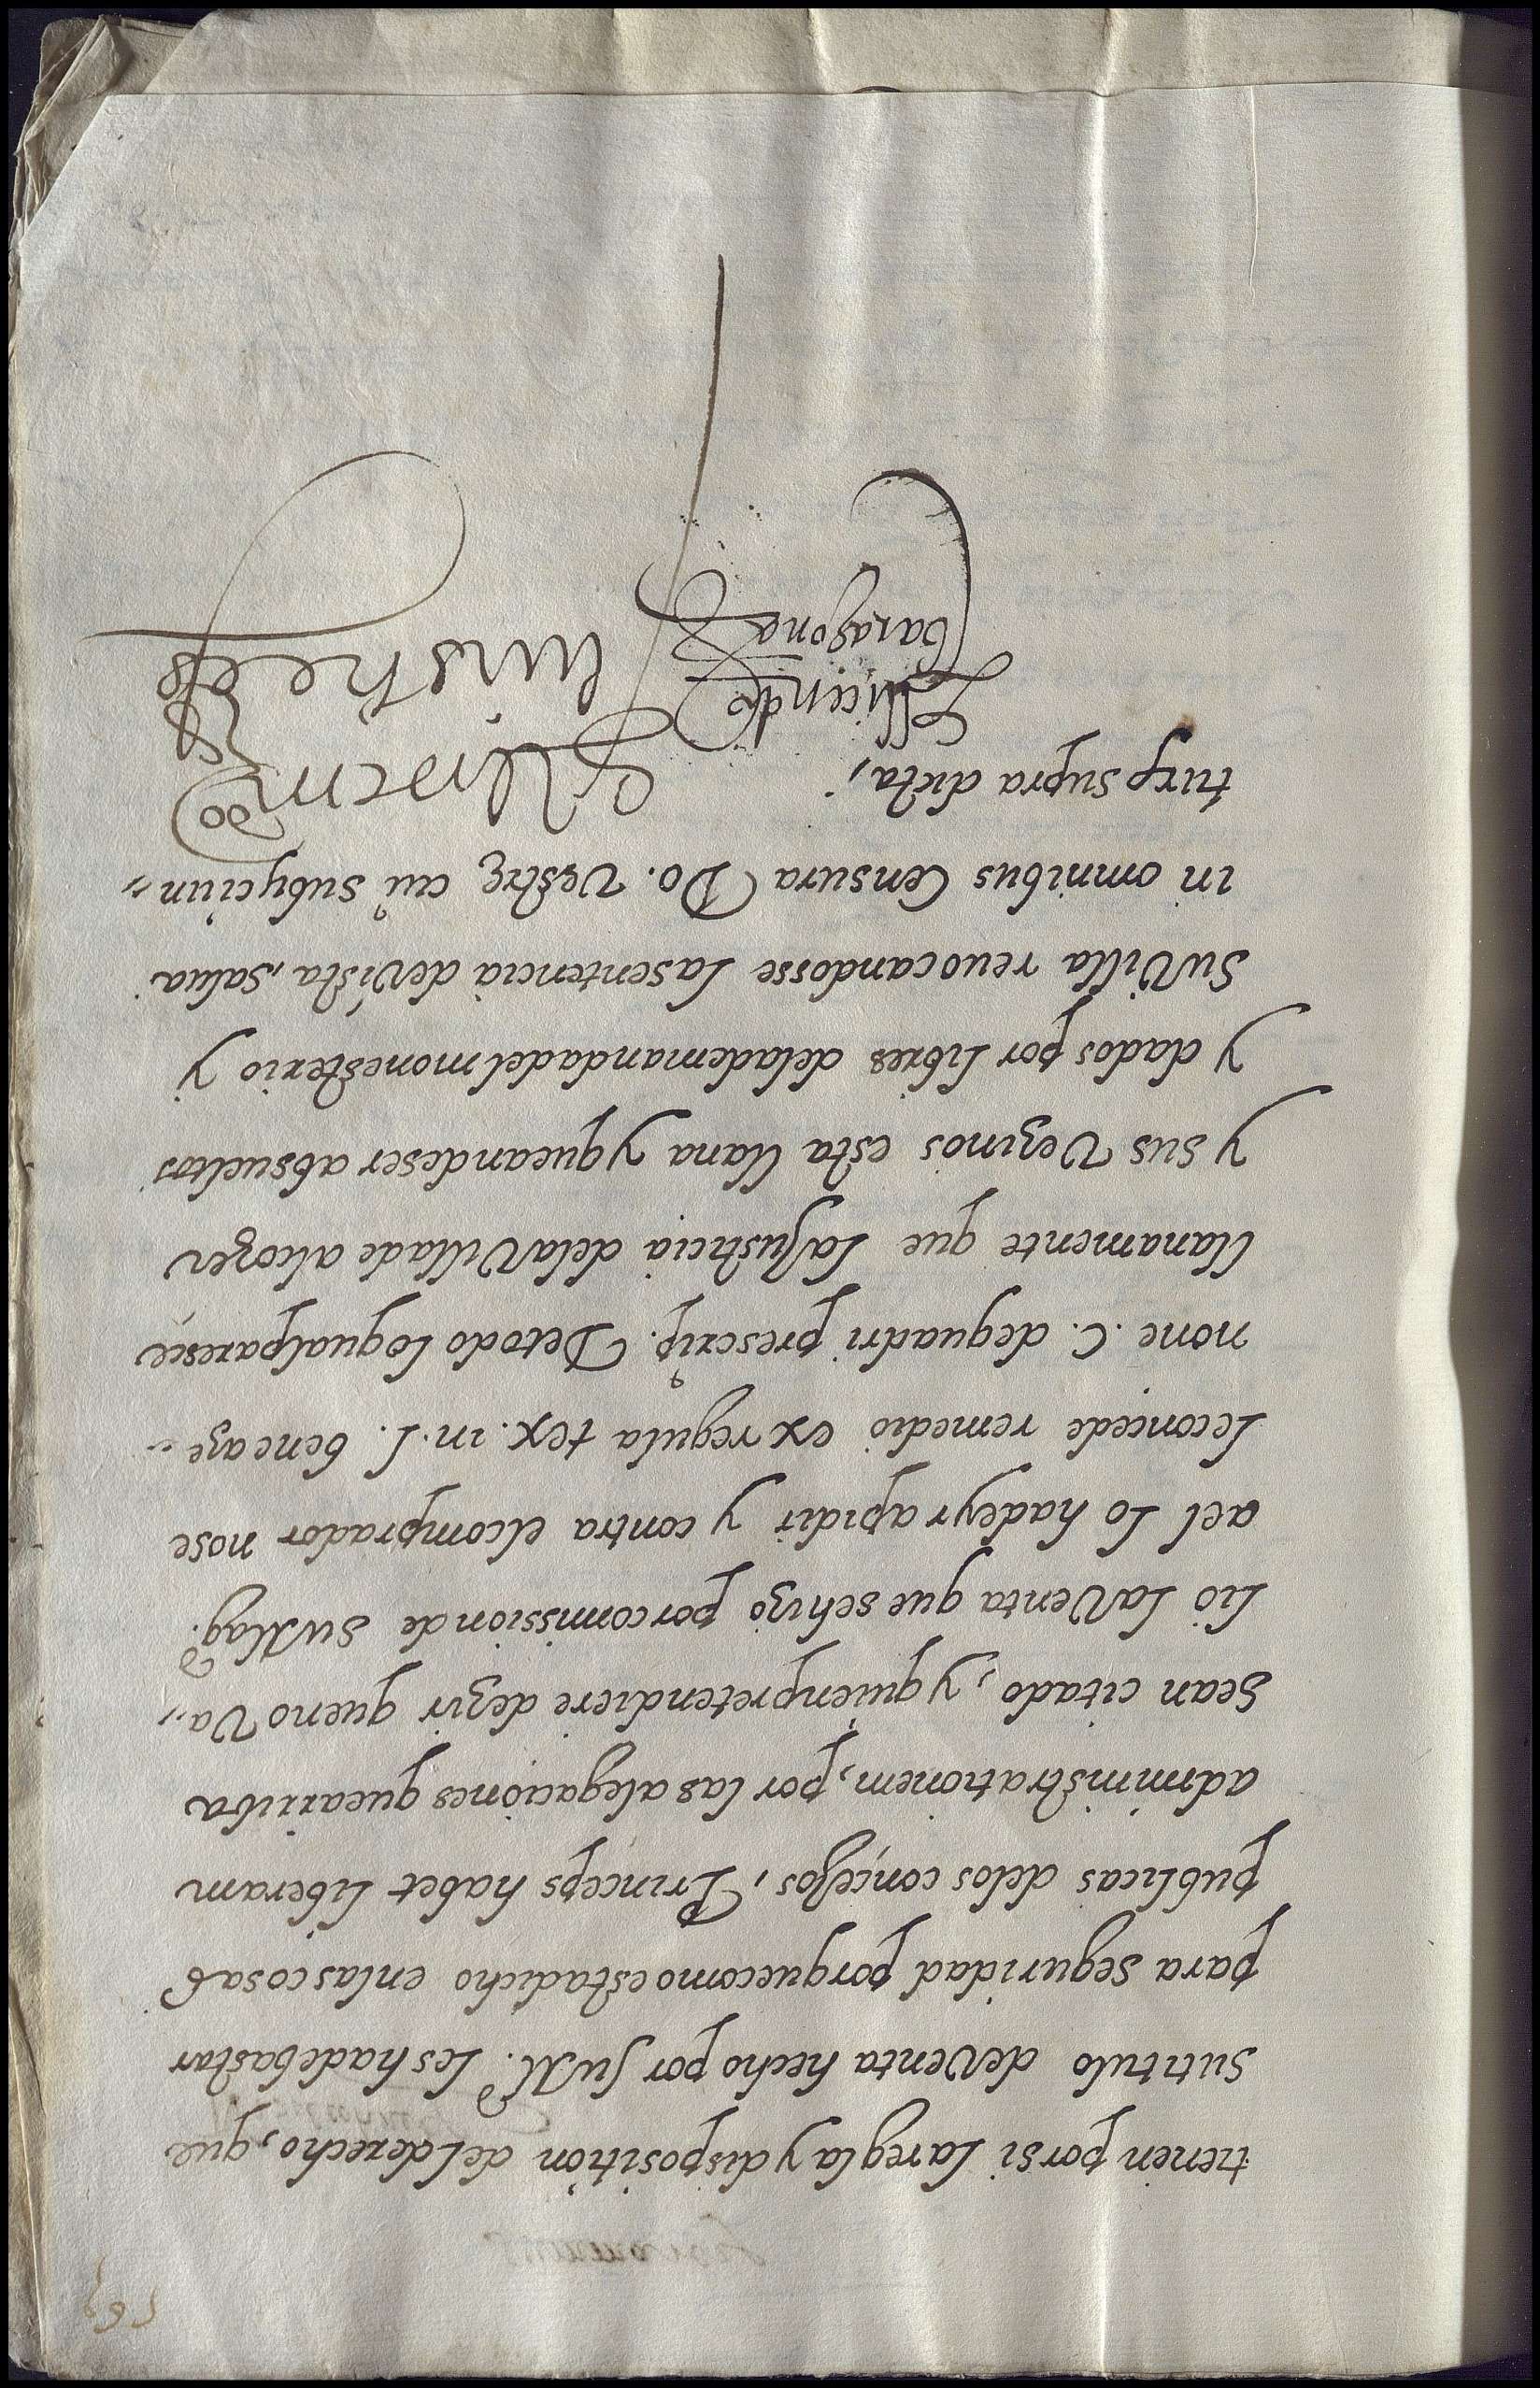 tienen por si la regla y disposition del derecho, que
su titulo de Venta hecho por su M.d les ha de bastar
para seguridad porque como esta dicho en las cosas
publicas de los conçejos, Princeps habet liberam
administrationem, por las alegaciones que arriba
sean citado, y quien pretendiere dezir que no Va,,
lio la Venta que se hizo por comission de su Mag.d
a el lo ha de yr a pidir y contra el comprador no se
le concede remedio ex regula tex. in. l. bene a ze..
none. C. de quadri prescrip. De todo lo qual paresçe
llanamente que la Justicia de la Villa de alcozer
y sus Vezinos esta llana y que an de ser absueltos
y dados por libres de la demanda del monesterio y
su Villa reuocandosse la sentencia de Vista, salua
in omnibus Censura Do. Vestrę cui subijciun,,
tur supra dicta,
El licen.do
El licen.do
baraona